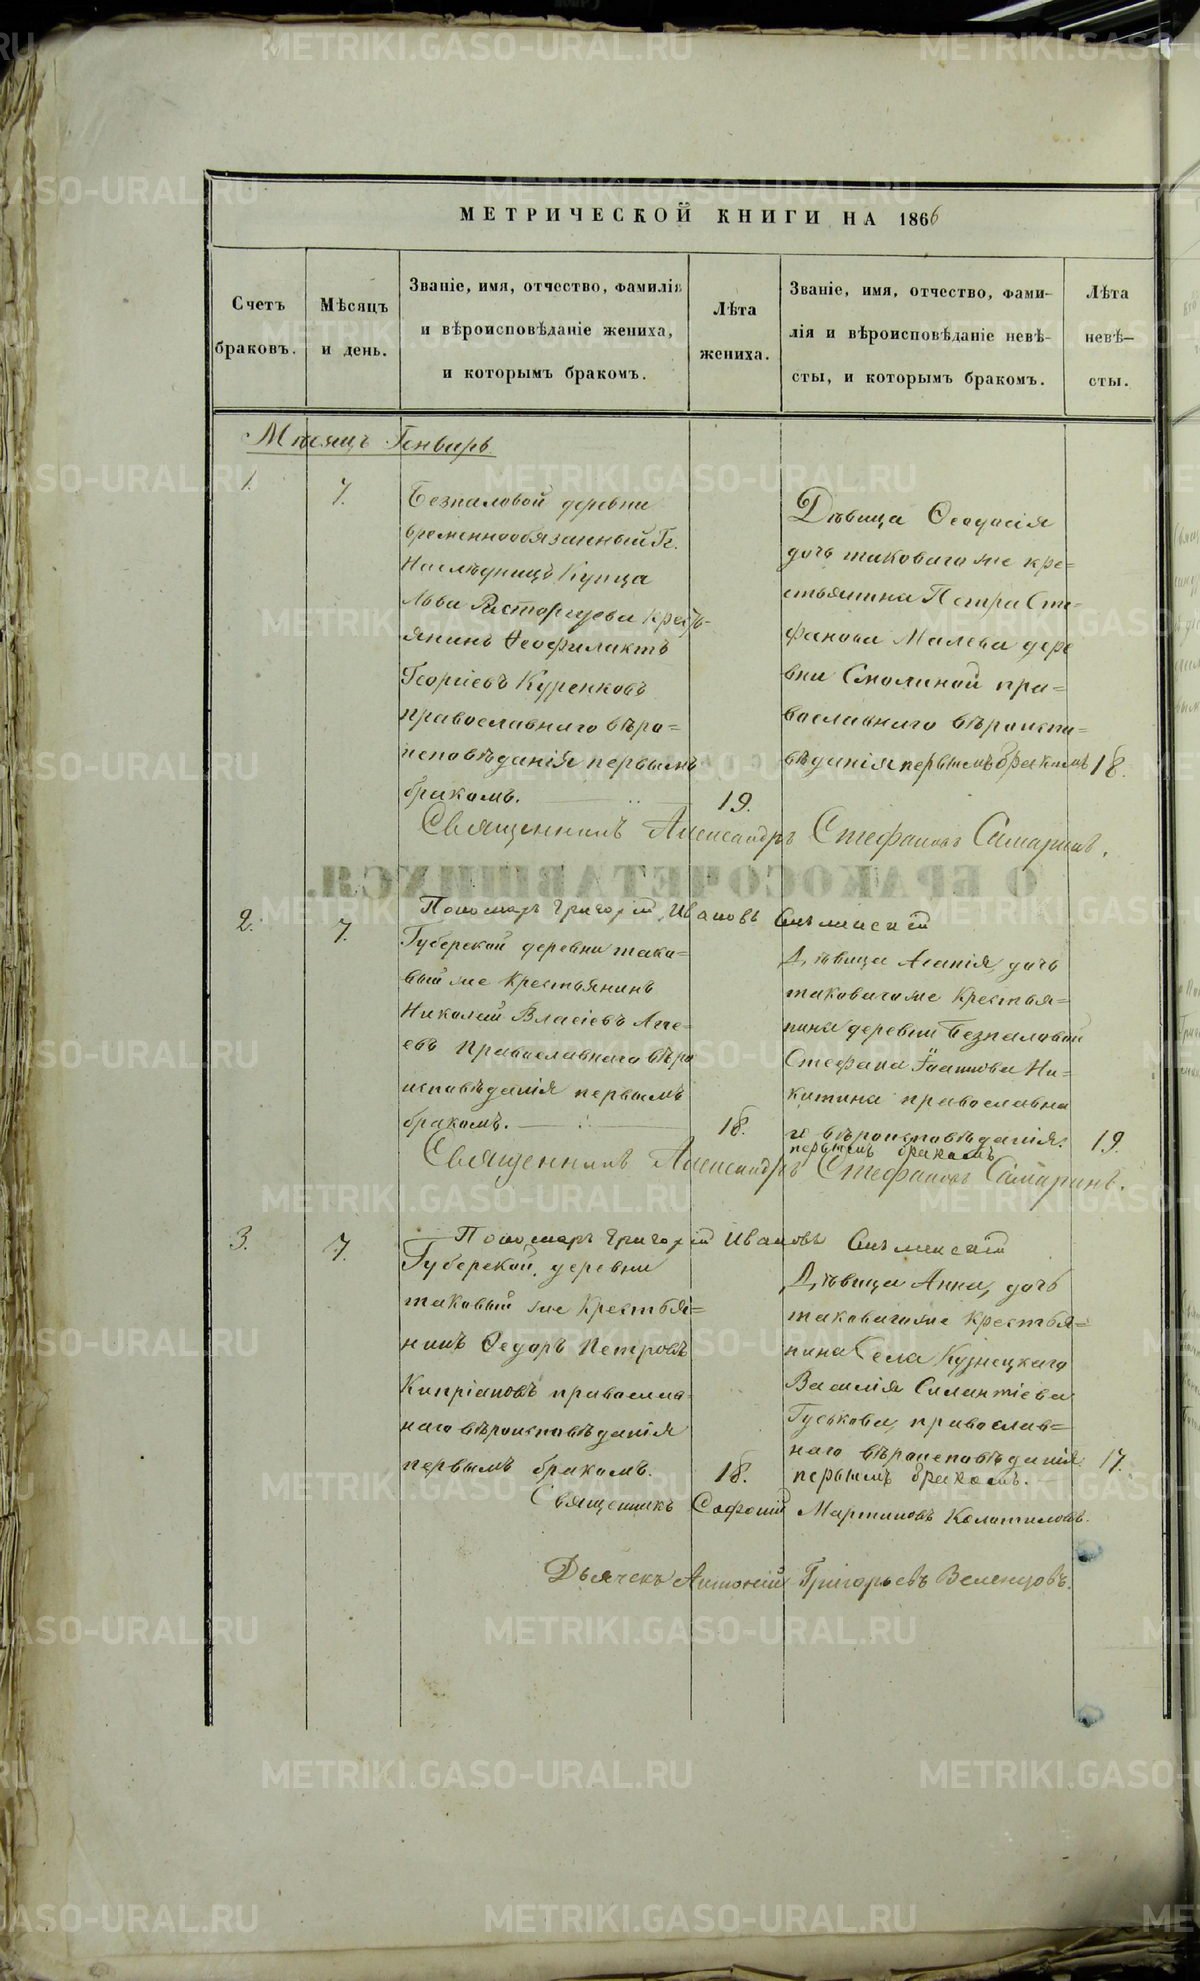 МЕТРИЧЕСКОЙ КНИГИ НА 1866
Счетъ
браковъ.
Мѣсяцъ
и день.
Званіе, имя, отчество, фамилія
и вѣроисповѣданіе жениха,
и которымъ бракомъ.
Лѣта
жениха.
Званіе, имя, отчество, фами-
лія и вѣроисповѣданіе невѣ-
сты, и которымъ бракомъ.
Лѣта
невѣ-
сты.
Мѣсяцъ Генварь
1.
7.
Безпаловой деревни
временнообязанный Гг.
Наслѣдницъ Купца
Льва Расторгуева Кресть-
янинъ Ѳеофилактъ
Георгіевъ Куренковъ
православнаго вѣро-
исповѣданія первымъ
бракомъ.
19.
Дѣвица Ѳеодосія
дочь таковаго же кре-
стьянина Петра Сте-
фанова Малева дере
вни Смолиной пра-
вославнаго вѣроиспо-
вѣданія первымъ бракомъ
18.
Священникъ Александръ Стефановъ Самаринъ.
Пономарь Григорій Ивановъ
2.
7.
Губерской деревни тако-
вый же крестьянинъ
Николай Власіевъ
православнаго вѣро
исповѣданія первымъ
бракомъ.
18.
Дѣвица Агапія, дочь
таковаго же крестья-
нина деревни Безпаловой
Стефана Іоаннова Ни-
китина православна
го вѣроисповѣданія
первымъ бракомъ
19.
Священникъ Александръ Стефановъ Самаринъ.
Пономарь Григорій Ивановъ
3.
7.
Губерской деревни
таковый же крестья-
нинъ Ѳедоръ Петровъ
Кипріановъ православ
наго вѣроисповѣданія
первымъ бракомъ.
18.
Дѣвица Анна, дочь
таковаго же крестья-
нина Села Кузнецкаго
Василія Силантіева
Гуськова, православ-
наго вѣроисповѣданія
первымъ бракомъ.
17.
Священникъ Софоній Мартиновъ
Дьячекъ Антоній Григорьевъ
О БРАКОСОЧЕТАВШИХСЯ.
METRIKI.GASO-URAL.RU